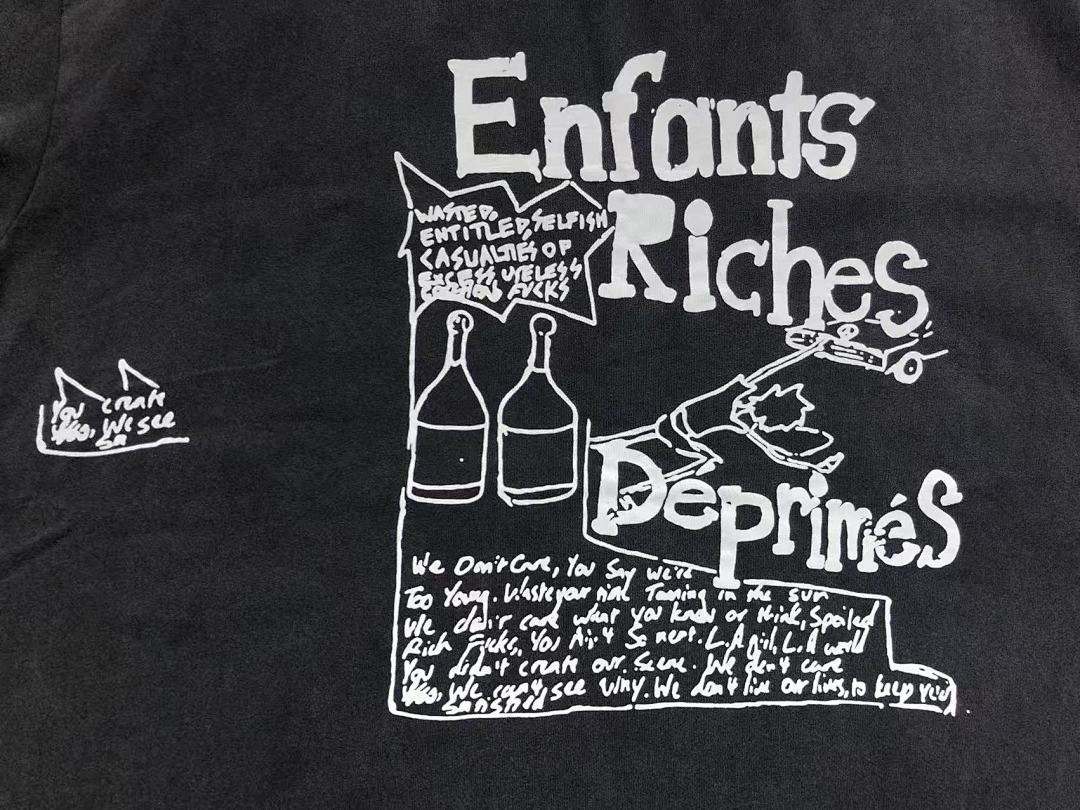 Enfants
Riches
Deprimés
WASTED,
ENTITLED, SELFISH
CASUALTIES OF
EXCESS USELESS
FUCKS
You create
We see
Sa
We Don't Care, You Say We're
Too Young. Waste your time Tanning in the sun
We don't care what you know or think, Spoiled
Rich Fucks, You Ain't So neat. L.A girl, L.A world
You didn't create our Scene. We don't care
We can't see Why. We don't live our lives, to keep
satisfied